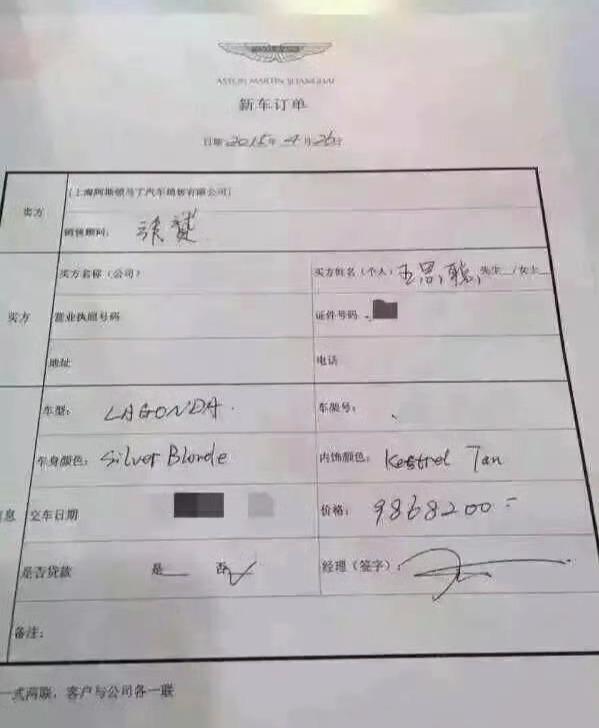 ASTON MARTIN SHANGHAI
新车订单
日期：2015年4月26日
卖方
[上海阿斯顿马丁汽车销售有限公司]
销售顾问： 张赟
买方
买方名称（公司） 买方姓名（个人）王思聪 先生__/女士__
营业执照号码 证件号码
地址 电话
车型： LAGONDA. 车架号：
车身颜色： Silver Blonde 内饰颜色： Kestrel Tan
息 交车日期 价格： 9868200
是否贷款 是__ 否√ 经理（签字）：
备注：
一式两联，客户与公司各一联